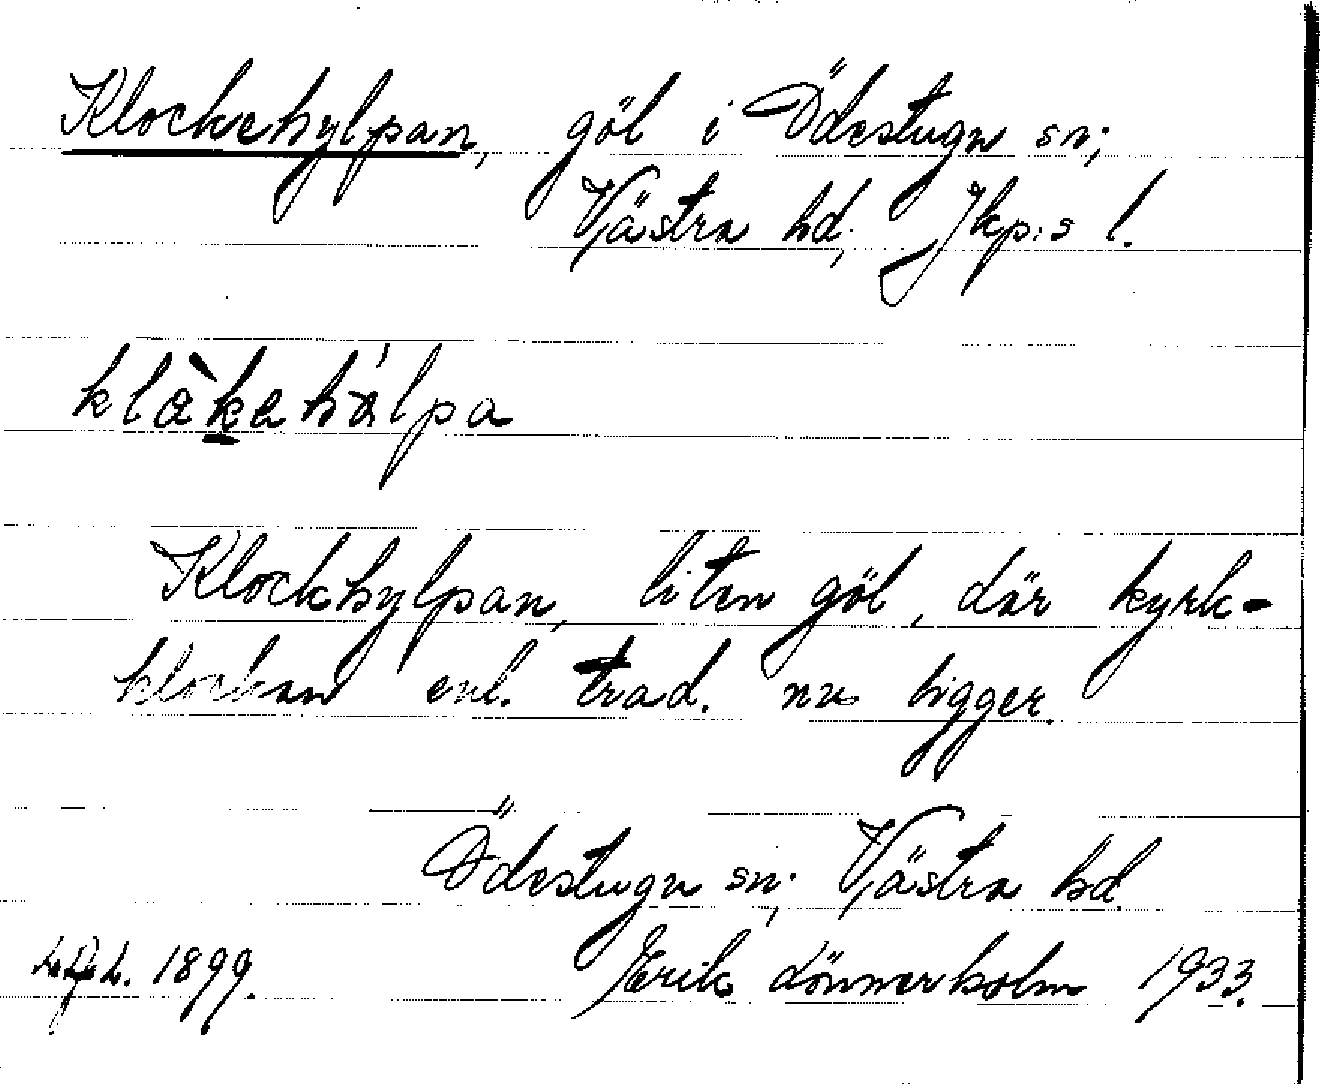 Klockehylpan, göl i Ödestugu sn;
Västra hd; Jkp:s l.
klåkehálpa
Klockhylpan, liten göl, där kyrk-
klockan enl. trad. nu ligger.
Ödestugu sn; Västra hd.
1899. Erik Lönnerholm 1933.